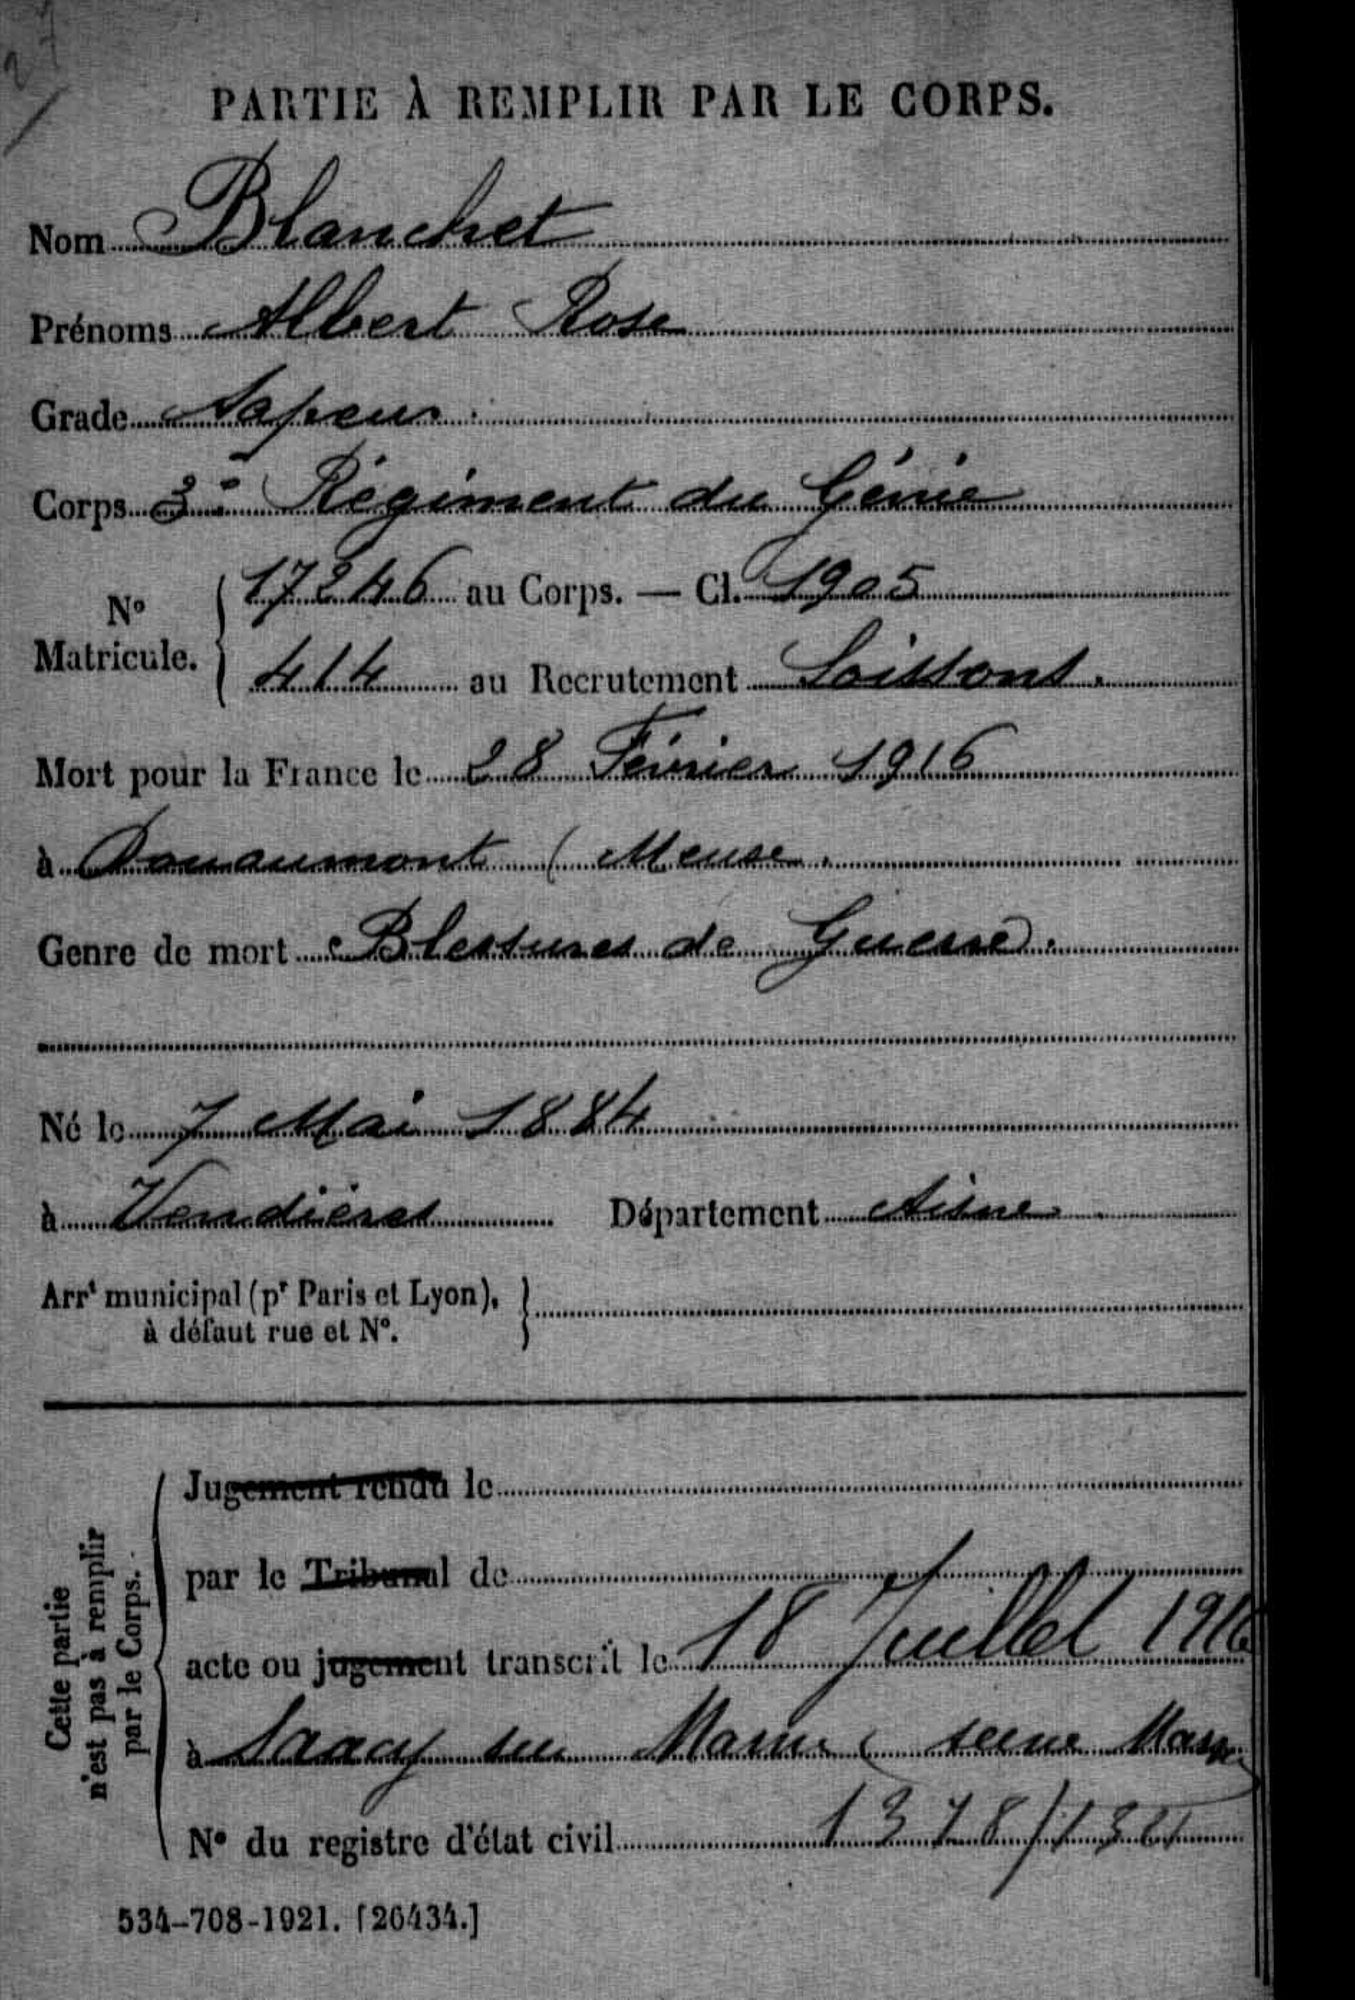 27
PARTIE À REMPLIR PAR LE CORPS.
Nom Blanchet
Prénoms Albert Rose
Grade Sapeur
Corps 3e Régiment du Génie
No Matricule.
17246 au Corps. — Cl. 1905
414 au Recrutement Soissons.
Mort pour la France le 28 Février 1916
à Douaumont (Meuse.
Genre de mort Blessures de Guerre.
Né le 7 Mai 1884
à Vendières Département Aisne
Arrt municipal (pr Paris et Lyon),
à défaut rue et No.
Cette partie
n'est pas à remplir
par le Corps.
Jugement rendu le
par le Tribunal de
acte ou jugement transcrit le 18 Juillet 1916
à Saacy sur Marne (seine Marne
No du registre d'état civil
534-708-1921. [26434.]